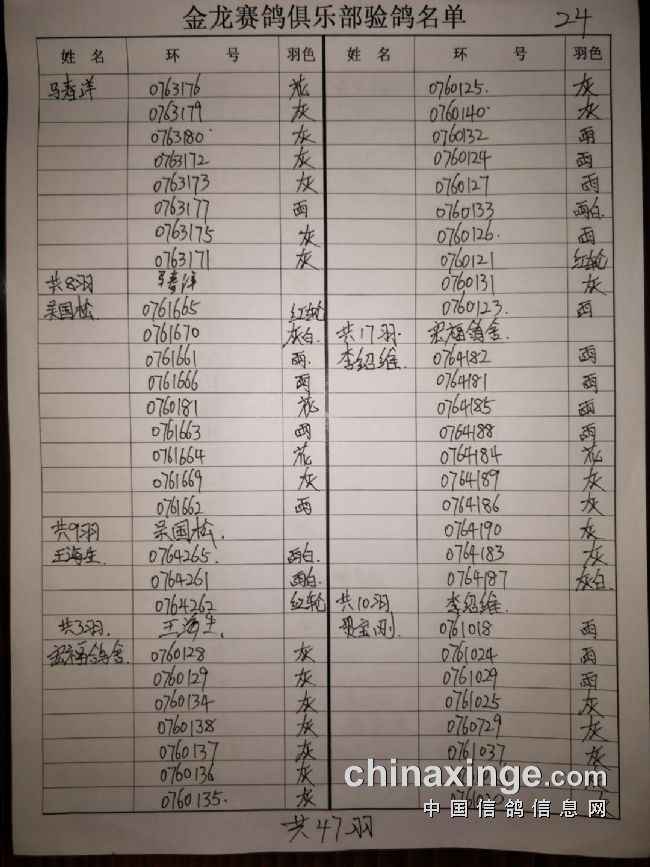 金龙赛鸽俱乐部验鸽名单
24
姓 名 环 号 羽色
马春洋 0763176 花
0763179 灰
0763180 灰
0763172 灰
0763173 灰
0763177 雨
0763175 灰
0763171 灰
共8羽 马春洋
吴国松 0761665 红轮
0761670 灰白
0761661 雨
0761666 雨
0760181 花
0761663 雨
0761664 花
0761669 灰
0761662 雨
共9羽 吴国松
王海生 0764265 雨白
0764261 雨白
0764262 红轮
共3羽 王海生
福鸽舍 0760128 灰
0760129 灰
0760134 灰
0760138 灰
0760137 灰
0760136 灰
0760135 灰
姓 名 环 号 羽色
0760125 灰
0760140 灰
0760132 雨
0760124 雨
0760127 雨
0760133 雨白
0760126 雨
0760121 红轮
0760131 灰
0760123 雨
共17羽 福鸽舍
李绍维 0764182 雨
0764181 雨
0764185 雨
0764188 雨
0764184 花
0764189 灰
0764186 灰
0764190 灰
0764183 灰
0764187 灰白
共10羽 李绍维
贾宝刚 0761018 雨
0761024 雨
0761029 雨
0761025 灰
0760729 灰
0761037 灰
共47羽
chinaxinge.com
中国信鸽信息网